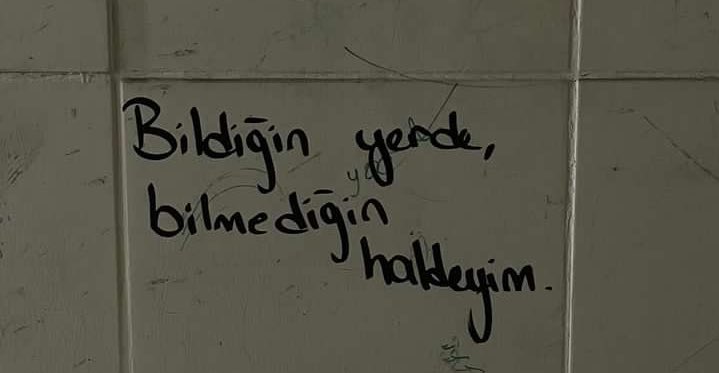 Bildiğin yerde,
bilmediğin
haldeyim.